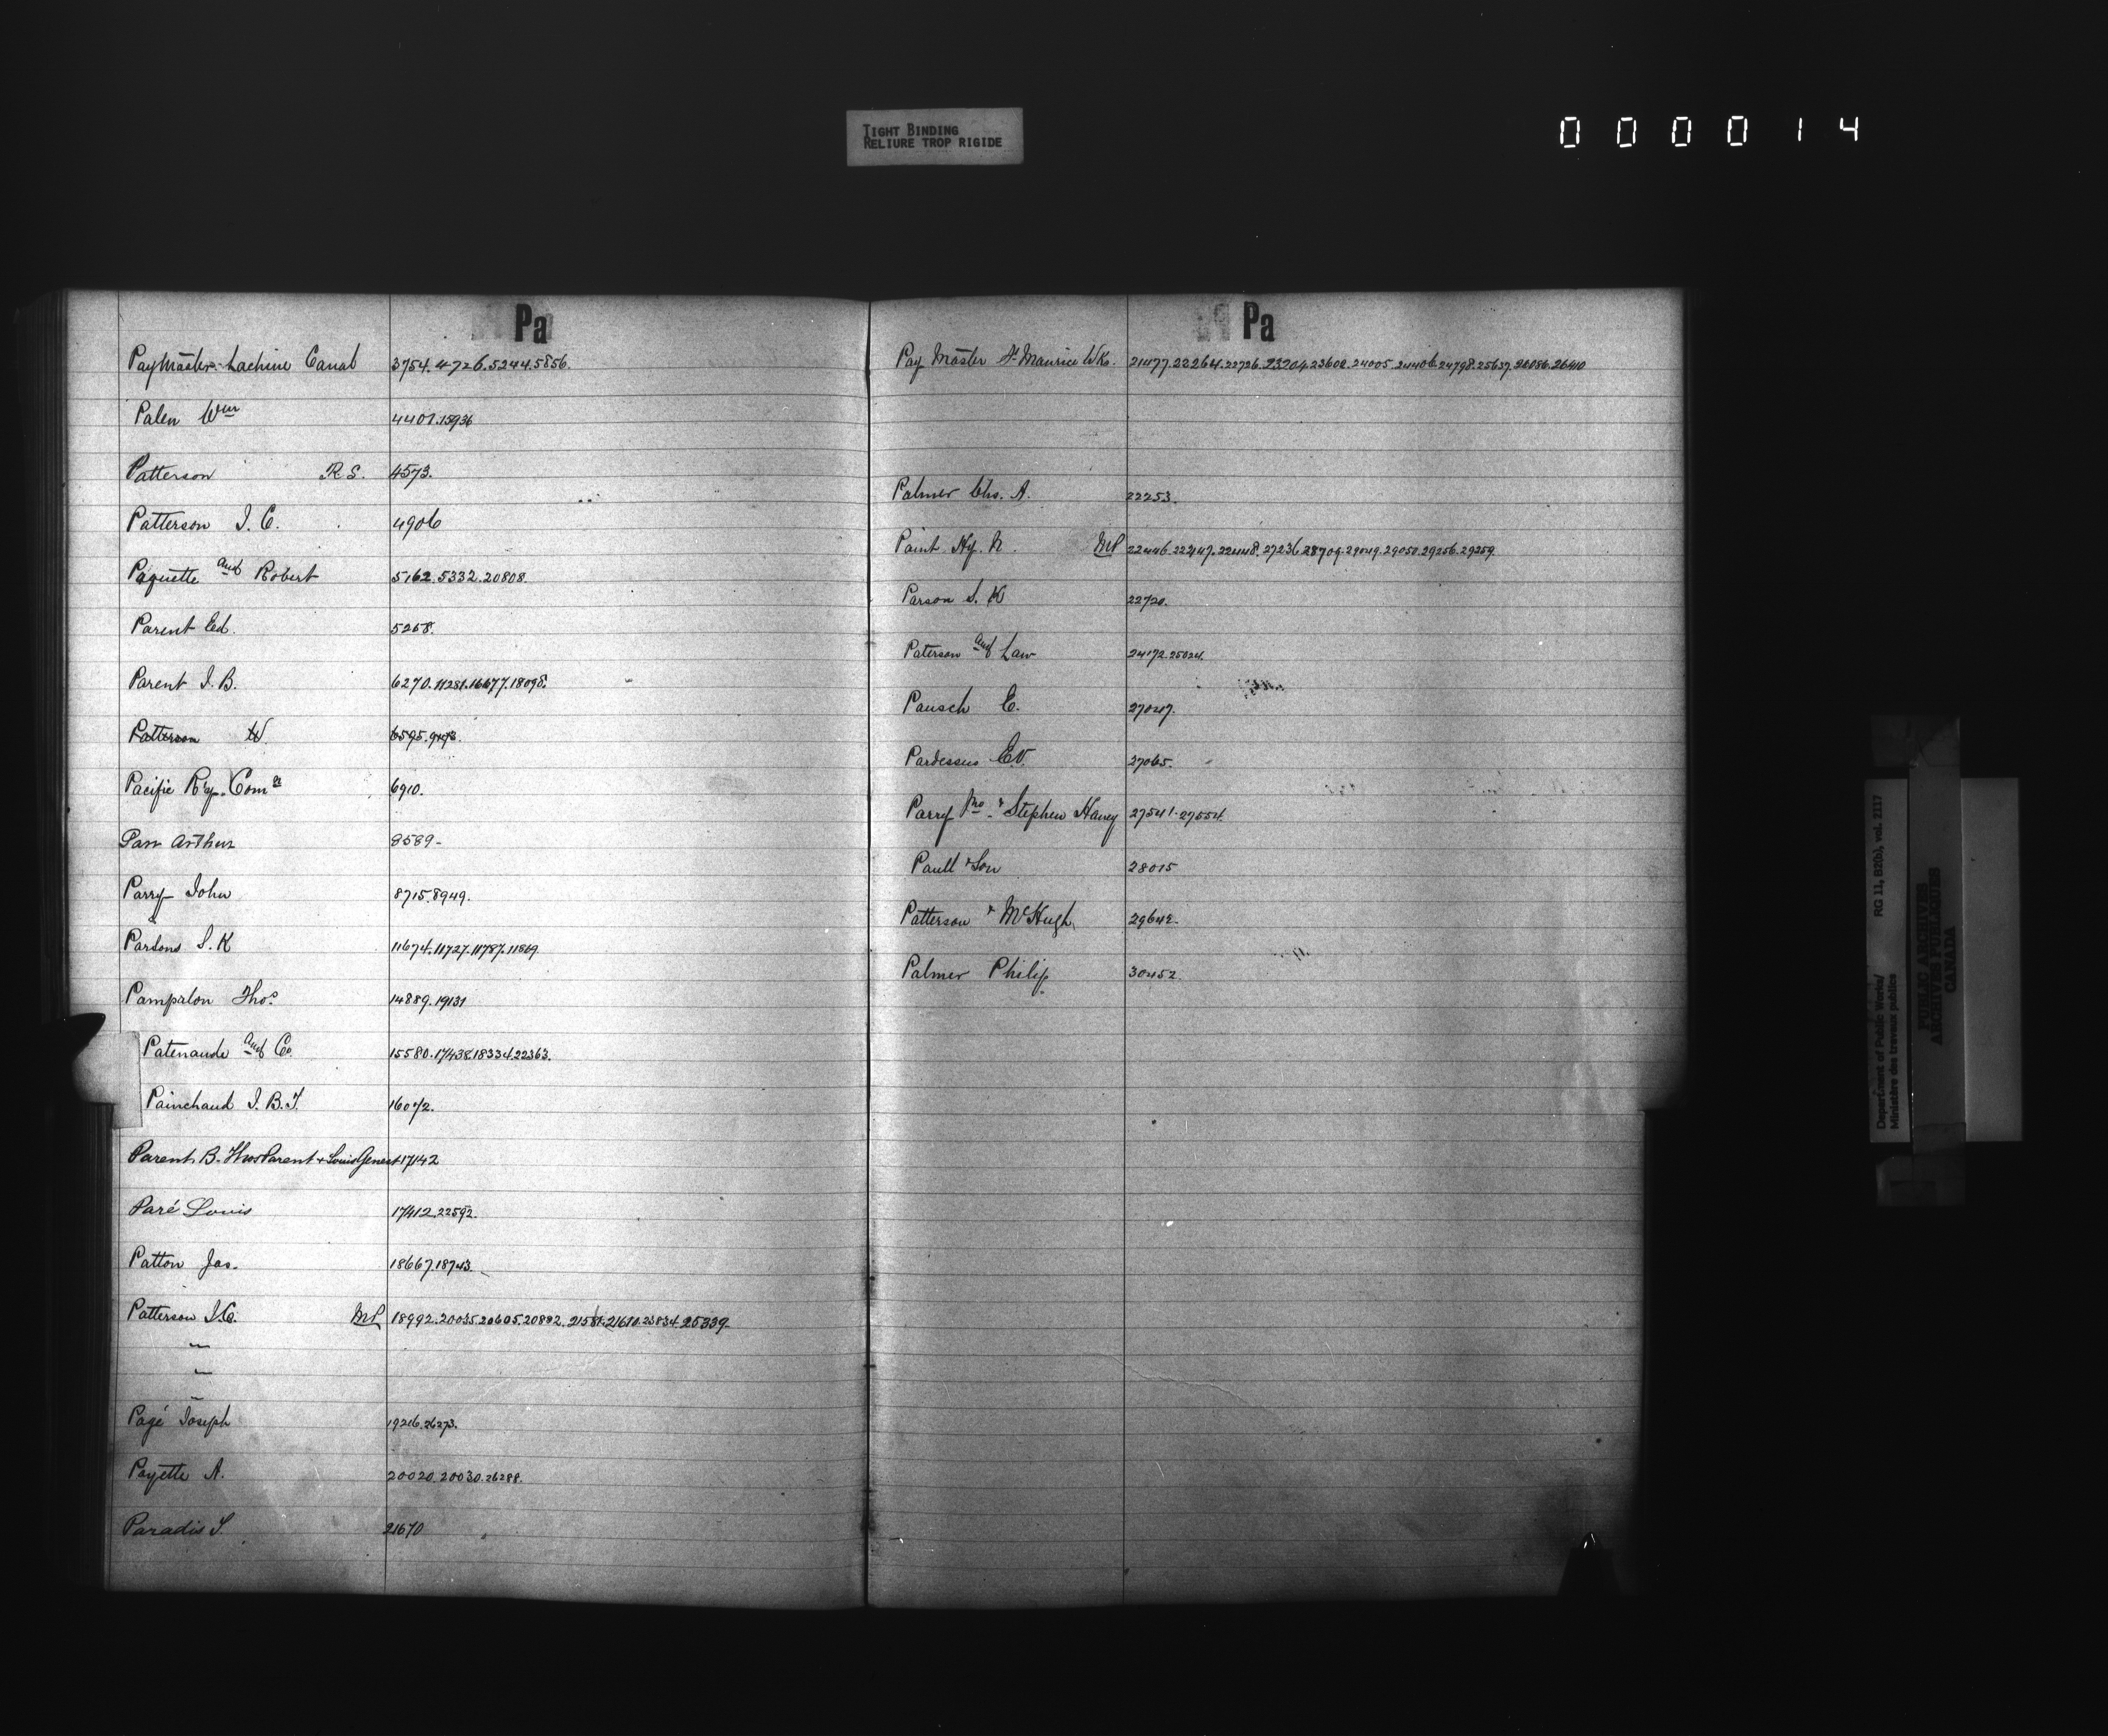 TIGHT BINDING
RELIURE TROP RIGIDE
000014
Pa
PayMaster Lachine Canal 3754.4726.5244.5856.
Palen Wm 4401.15936
Patterson R.S. 4573.
Patterson J.C. 4906
Paquette and Robert 5162.5332.20808.
Parent Ed. 5258.
Parent J.B. 6270.11281.16677.18098.
Patterson W. 6595.9473.
Pacific Ry. Coms 6910.
Parr Arthur 8589-
Parry John 8715.8949.
Parsons S.K 11674.11727.11787.11869.
Pampalon Thos. 14889.19131
Patenaude and Co. 15580.17438.18334.22363.
Painchaud J.B.T. 16072.
Parent B. Thos Parent + Louis Genest 17142
Paré Louis 17412.22592.
Patton Jas. 18667.18743.
Patterson J.C. MP 18992.20035.20605.20882.21581.21610.23834.25339-
"
"
"
Pagé Joseph 19216.26273.
Payette A. 20020.20030.26288.
Paradis S. 21670
Pa
Pay Master St Maurice Wks. 21477.22264.22726.23204.23602.24005.24406.24798.25637.26086.26410
Palmer Chs. A. 22253.
Paint Hy. N. MP 22446.22447.22448.27236.28709.29049.29050.29256.29259.
Parson S.K 22720.
Paterson and Law 24172.25024.
Pausch E. 27047.
Pardessus Ed. 27065.
Parry Jno. & Stephen Haney 27541.27554.
Paull & Son 28015
Patterson & McHugh 29642-
Palmer Philip 30452
Department of Public Works/
Ministère des travaux publics
RG 11, B2(b), vol. 2117
PUBLIC ARCHIVES
ARCHIVES PUBLIQUES
CANADA